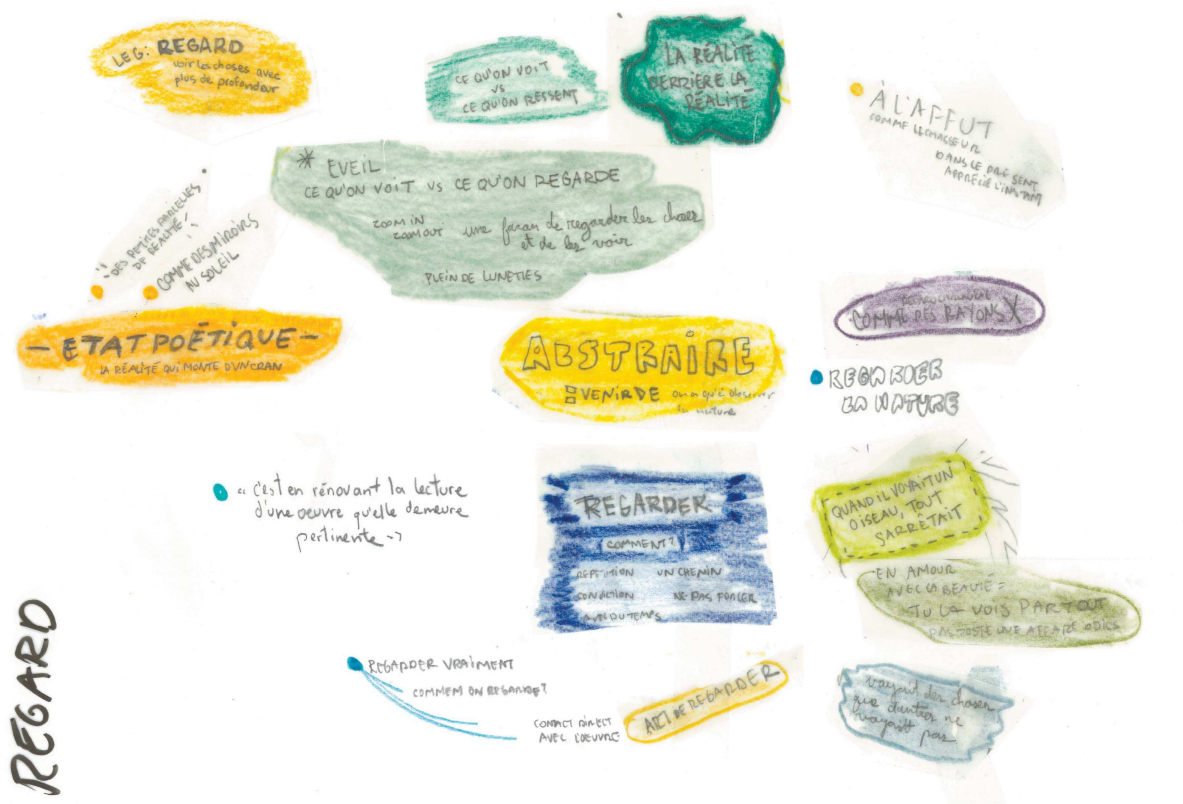 LEG: REGARD
voir les choses avec
plus de profondeur
CE QU'ON VOIT
VS
CE QU'ON RESSENT
LA RÉALITÉ
DERRIÈRE LA
RÉALITÉ
À L'AFFUT
COMME LE CHASSEUR
DANS LE PRÉSENT
APPRÉCIE L'INSTANT
* EVEIL
CE QU'ON VOIT VS CE QU'ON REGARDE
ZOOM IN
ZOOM OUT
une façon de regarder les choses
et de les voir
PLEIN DE LUNETTES
DES PETITES PARCELLES
DE RÉALITÉ!
COMME DES MIROIRS
AU SOLEIL
- ETAT POËTIQUE -
LA RÉALITÉ QUI MONTE D'UN CRAN
ABSTRAIRE
: VENIR DE
on a qu'à observer
la nature
COMME DES RAYONS X
REGARDER
LA NATURE
« c'est en rénovant la lecture
d'une oeuvre qu'elle demeure
pertinente »
REGARDER
COMMENT?
RÉPÉTITION
UN CHEMIN
CONVICTION
NE PAS PARLER
QUAND IL VOYAIT UN
OISEAU, TOUT
S'ARRÊTAIT
EN AMOUR
AVEC LA BEAUTÉ =
TU LA VOIS PARTOUT
PAS JUSTE UNE AFFAIRE
REGARDER VRAIMENT
COMMENT ON REGARDE?
CONTACT DIRECT
AVEC L'OEUVRE
ART DE REGARDER
voyait des choses
que d'autres ne
voyait pas
REGARD